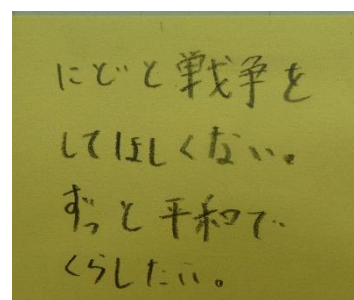 にどと戦争を
してほしくない。
ずっと平和で
くらしたい。